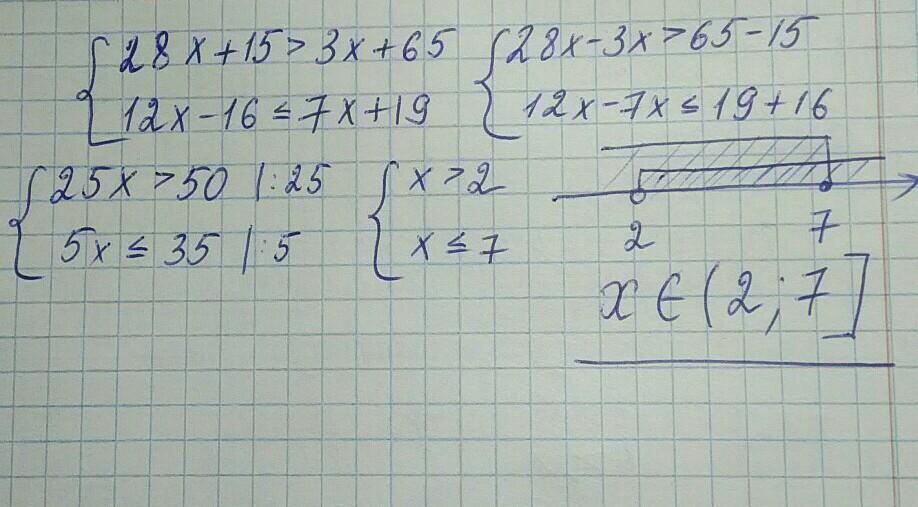 {28x+15>3x+65
12x-16≤7x+19
{28x-3x>65-15
12x-7x≤19+16
{25x>50 |:25
5x≤35 |:5
{x>2
x≤7
2 7
x∈(2;7]